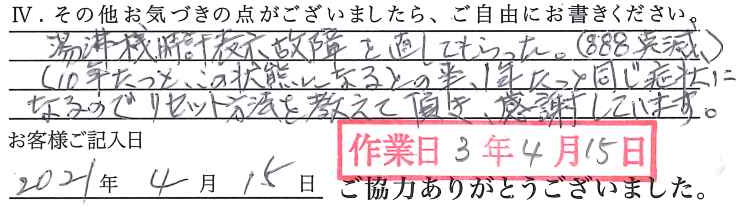 Ⅳ.その他お気づきの点がございましたら、ご自由にお書きください。
湯沸機時計表示故障を直してもらった。(888点滅、)
(10年たつと、この状態になるとの事、1年たつと同じ症状に
なるのでリセット方法を教えて頂き、感謝しています。
お客様ご記入日
作業日 3年4月15日
2021年 4月 15日 ご協力ありがとうございました。